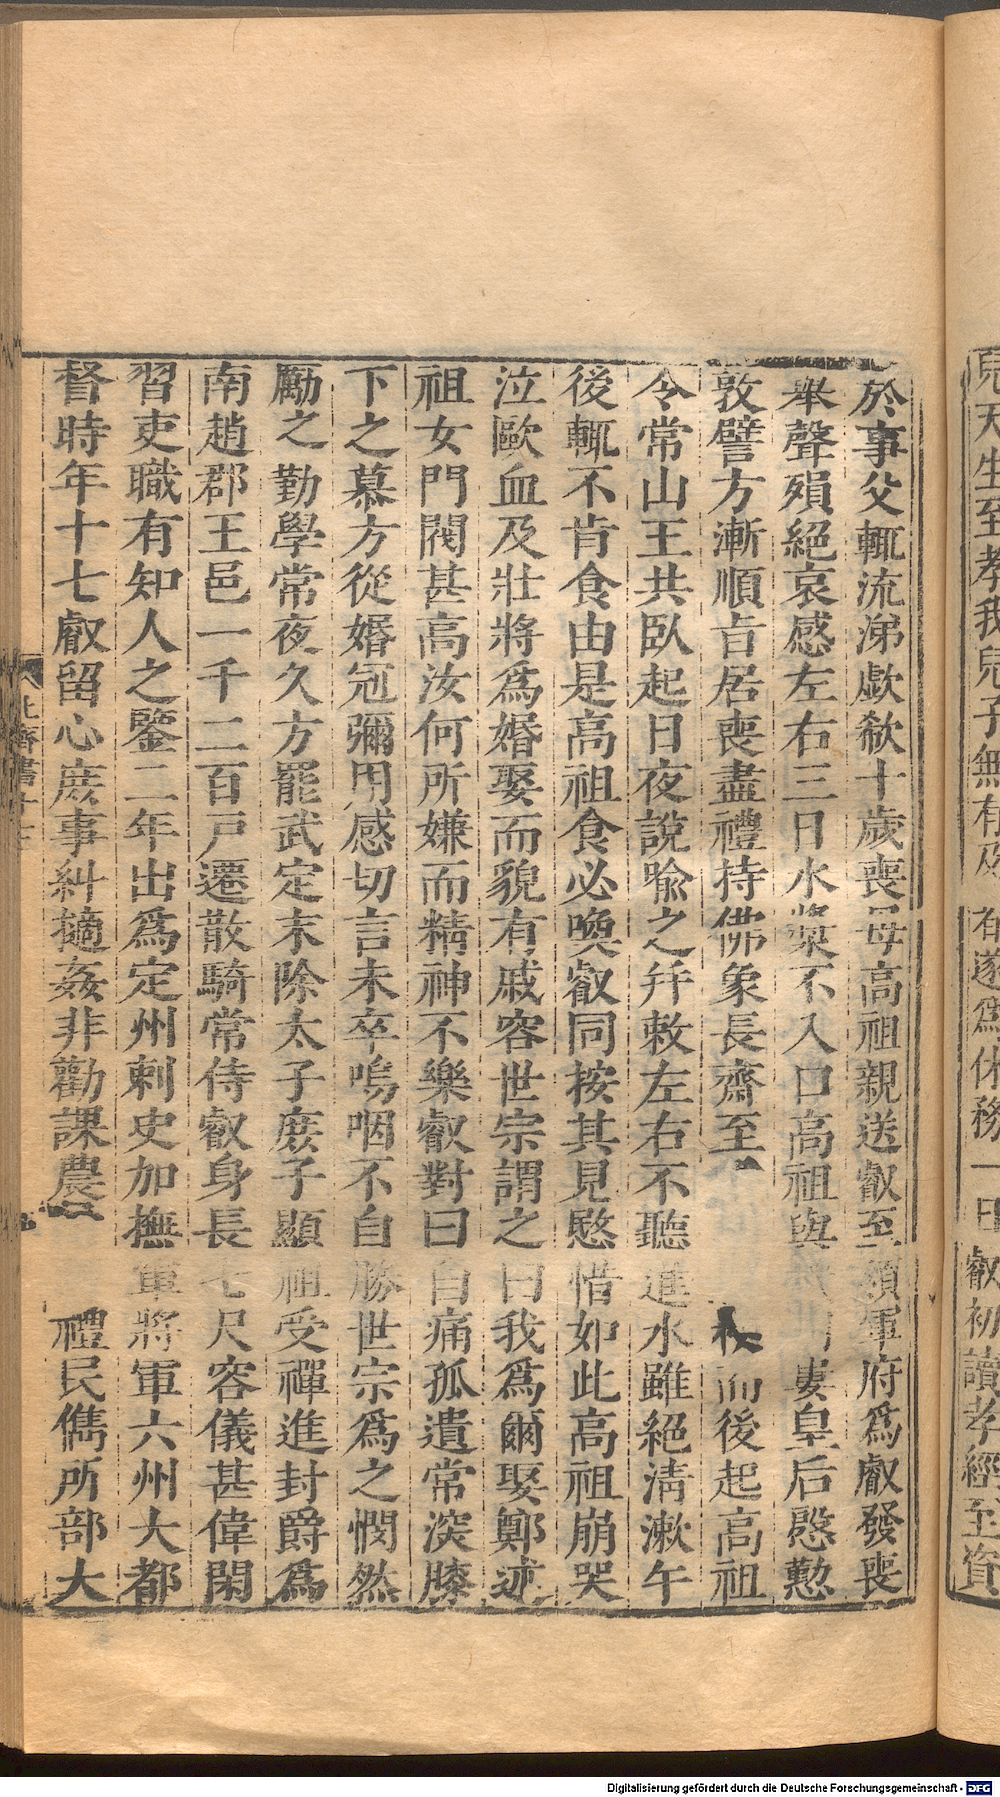 於事父輒流涕歔欷十歲喪母高祖親送叡至領軍府爲叡發喪
舉聲殞絕哀感左右三日水漿不入口高祖與婁皇后慇懃
敦譬方漸順旨居喪盡禮持佛象長齋至而後起高祖
令常山王共臥起日夜說喩之幷敕左右不聽進水雖絕淸漱午
後輒不肯食由是高祖食必喚叡同按其見愍惜如此高祖崩哭
泣歐血及壯將爲婚娶而貌有戚容世宗謂之曰我爲爾娶鄭述
祖女門閥甚高汝何所嫌而精神不樂叡對曰自痛孤遺常深膝
下之慕方從婚冠彌用感切言未卒嗚咽不自勝世宗爲之憫然
勵之勤學常夜久方罷武定末除太子庶子顯祖受禪進封爵爲
南趙郡王邑一千二百戸遷散騎常侍叡身長七尺容儀甚偉閑
習吏職有知人之鑒二年出爲定州刺史加撫軍將軍六州大都
督時年十七叡留心庶事糾擿姦非勸課農禮民儁所部大
北齊書十三
兒天生至孝我兒子無有及有遂爲休務一日叡初讀孝經至資
Digitalisierung gefördert durch die Deutsche Forschungsgemeinschaft - DFG